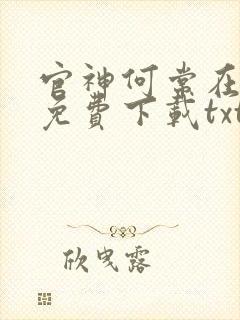 官神何常在
免費下載txt
欣曳露